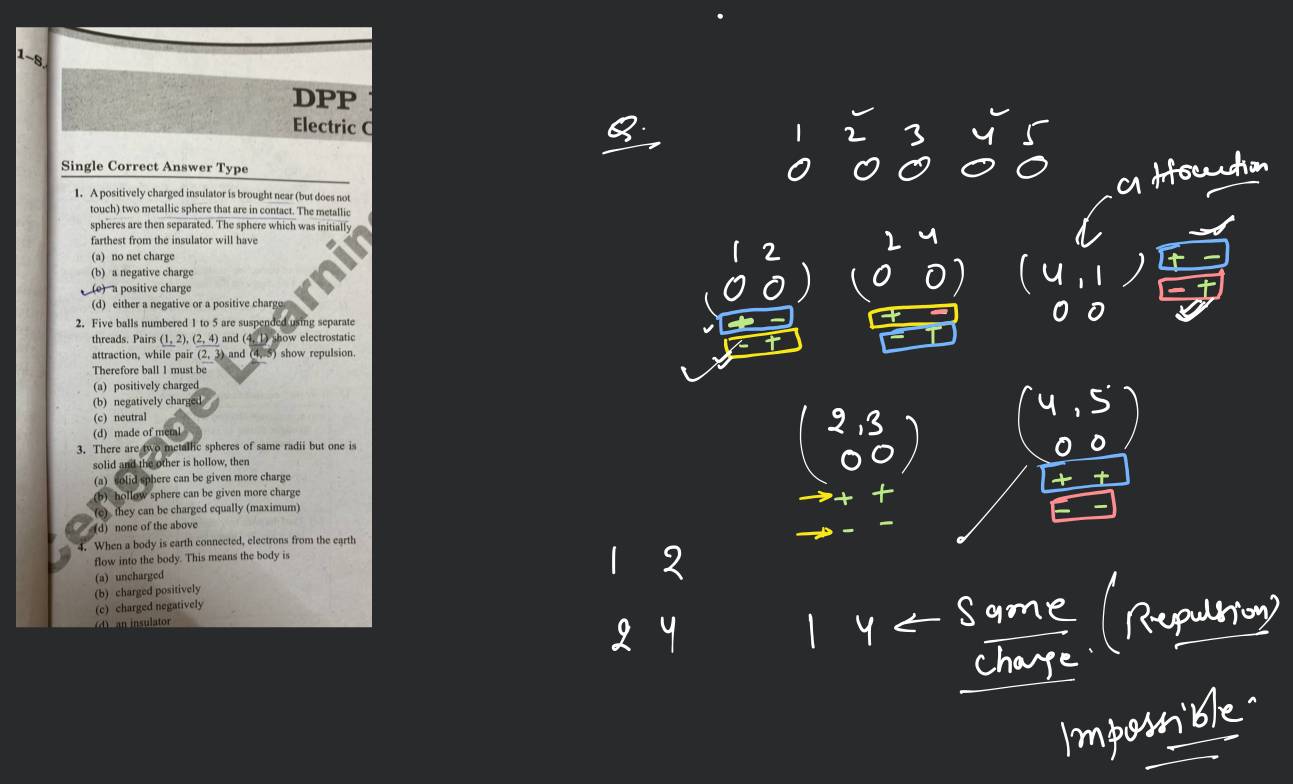 1-8.
DPP 1
Electric C
Single Correct Answer Type
1. A positively charged insulator is brought near (but does not
touch) two metallic sphere that are in contact. The metallic
spheres are then separated. The sphere which was initially
farthest from the insulator will have
(a) no net charge
(b) a negative charge
(c) a positive charge
(d) either a negative or a positive charge
2. Five balls numbered 1 to 5 are suspended using separate
threads. Pairs (1, 2), (2, 4) and (4, 1) show electrostatic
attraction, while pair (2, 3) and (4, 5) show repulsion.
Therefore ball 1 must be
(a) positively charged
(b) negatively charged
(c) neutral
(d) made of metal
3. There are two metallic spheres of same radii but one is
solid and the other is hollow, then
(a) solid sphere can be given more charge
(b) hollow sphere can be given more charge
(c) they can be charged equally (maximum)
(d) none of the above
4. When a body is earth connected, electrons from the earth
flow into the body. This means the body is
(a) uncharged
(b) charged positively
(c) charged negatively
(d) an insulator
Cengage Learning
Q. 1 2 3 4 5
attraction
1 2
2 4
(4, 1)
+ -
- +
+ -
- +
+ -
- +
(2, 3)
+ +
- -
(4, 5)
+ +
- -
1 2
2 4
1 4 ← Same (Repulsion)
charge.
Impossible.